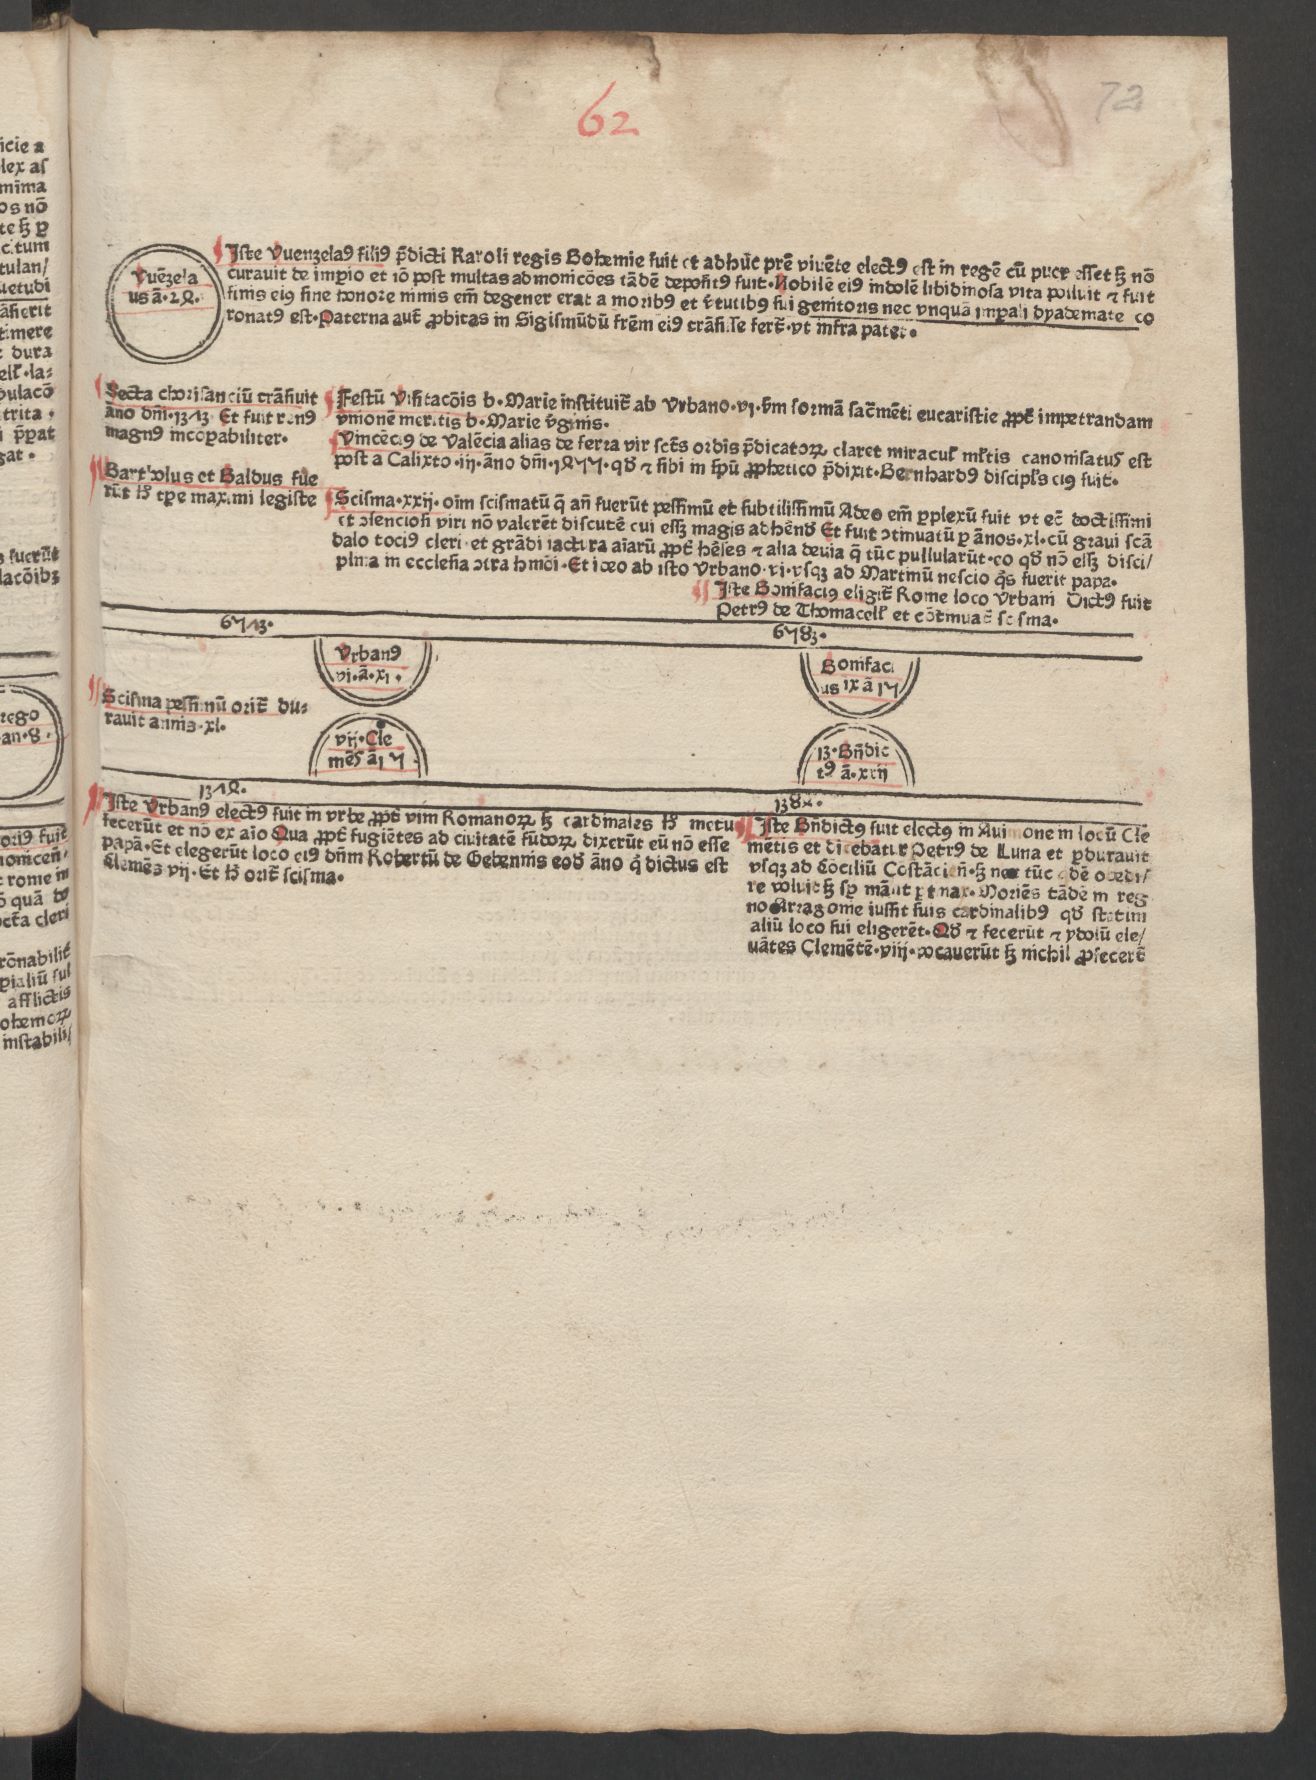 62
73
Vuēzela
us ā·22·
Iste Vuenzelaꝰ filiꝰ p̄dicti Karoli regis Bohemie fuit et adhuc̄ prē viuēte electꝰ est in regē cū puer esset sꝫ nō
curauit de imꝑio et iō post multas admonicōes tādē deponit̄ꝰ fuit·Nobilē eiꝰ indolē libidinosa vita polluit ⁊ fuit
finis eiꝰ sine honore nimis em̄ degener erat a moribꝰ et v̄tutibꝰ sui genitoris nec vnquā imꝑali dyademate co
ronatꝰ est·Paterna aut̄ ꝓbitas in Sigismūdū frēm eiꝰ trāsisse fert̄·vt infra patet·
Secta chorisanciū trāsiuit
āno dn̄i·1373 Et fuit
magnꝰ incōꝑabiliter·
Bartholus et Baldus fue
rūt hͦ tꝑe maximi legiste
Festū visitacōis b·Marie instituit̄ ab Vrbano·vj·fm̄ formā sacr̄mēti eucaristie ꝓpt̄ impetrandam
vnionē meritis b·Marie v̄ginis·
Vincēciꝰ de Valēcia alias de ferra vir sct̄s ordīs p̄dicatoꝝ claret miracul̄ ml̄tis canonisatus est
post a Calixto·iij·āno dn̄i·1455·qđ ⁊ sibi in spū ꝓphetico p̄dixit·Bernhardꝰ discipl̄s eiꝰ fuit·
Scisma·xxij·oīm scismatū q̄ an̄ fuerūt pessimū et subtilissimū Adeo em̄ ꝑplexū fuit vt ec̄ doctissimi
et ↄsenciosi viri nō valerēt discutē cui essꝫ magis adhēnđ Et fuit ↄtinuatū ꝑ ānos·xl·cū graui scā
dalo tociꝰ cleri et grādi iactura aīarū ꝓpt̄ hēses ⁊ alia deuia q̄ tūc pullularūt·eo qđ nō essꝫ disci/
plina in ecclesia ↄtra hmōi·Et ideo ab isto Vrbano·vi·vsqꝫ ad Martinū nescio q̄s fuerit papa·
Iste Bonifaciꝰ eligit̄ Rome loco Vrbani Dictꝰ fuit
Petrꝰ de Thomacell̄ et cōtinuat̄ scisma·
6573·
6783·
Vrbanꝰ
vi·ā·xi·
Bonifaci
us ix ā 15
Scisma pessimū orit̄ du⸗
rauit annis·xl·
vij·Cle
mēs ā 15
13·Bn̄dic
tꝰ ā·xxij
1374·
1384·
Iste Vrbanꝰ electꝰ fuit in vrbe ꝓpt̄ vim Romanoꝝ sꝫ cardinales hͦ metu
fecerūt et nō ex aīo Qua ꝓpt̄ fugiētes ad ciuitatē fūdoꝝ dixerūt eū nō esse
papā·Et elegerūt loco eiꝰ dn̄m Robertū de Gebennis eođ āno q̇ dictus est
Clemēs vij·Et hͦ orit̄ scisma·
Iste Bn̄dictꝰ fuit electꝰ in Auinione in locū Cle
mētis et dicebatur Petrꝰ de Luna et ꝑdurauit
vsqꝫ ad Cōciliū Costāciēn̄·sꝫ nec tūc qidē obedi/
re voluit sꝫ sꝑ māsit ꝑtinax·Moriēs tādē in reg
no Arragonie iussit suis cardinalibꝰ qđ statim
aliū loco sui eligerēt·Qđ ⁊ fecerūt ⁊ ydolū ele/
uātes Clemētē·viij·vocauerūt sꝫ nichil ꝓfecerēt